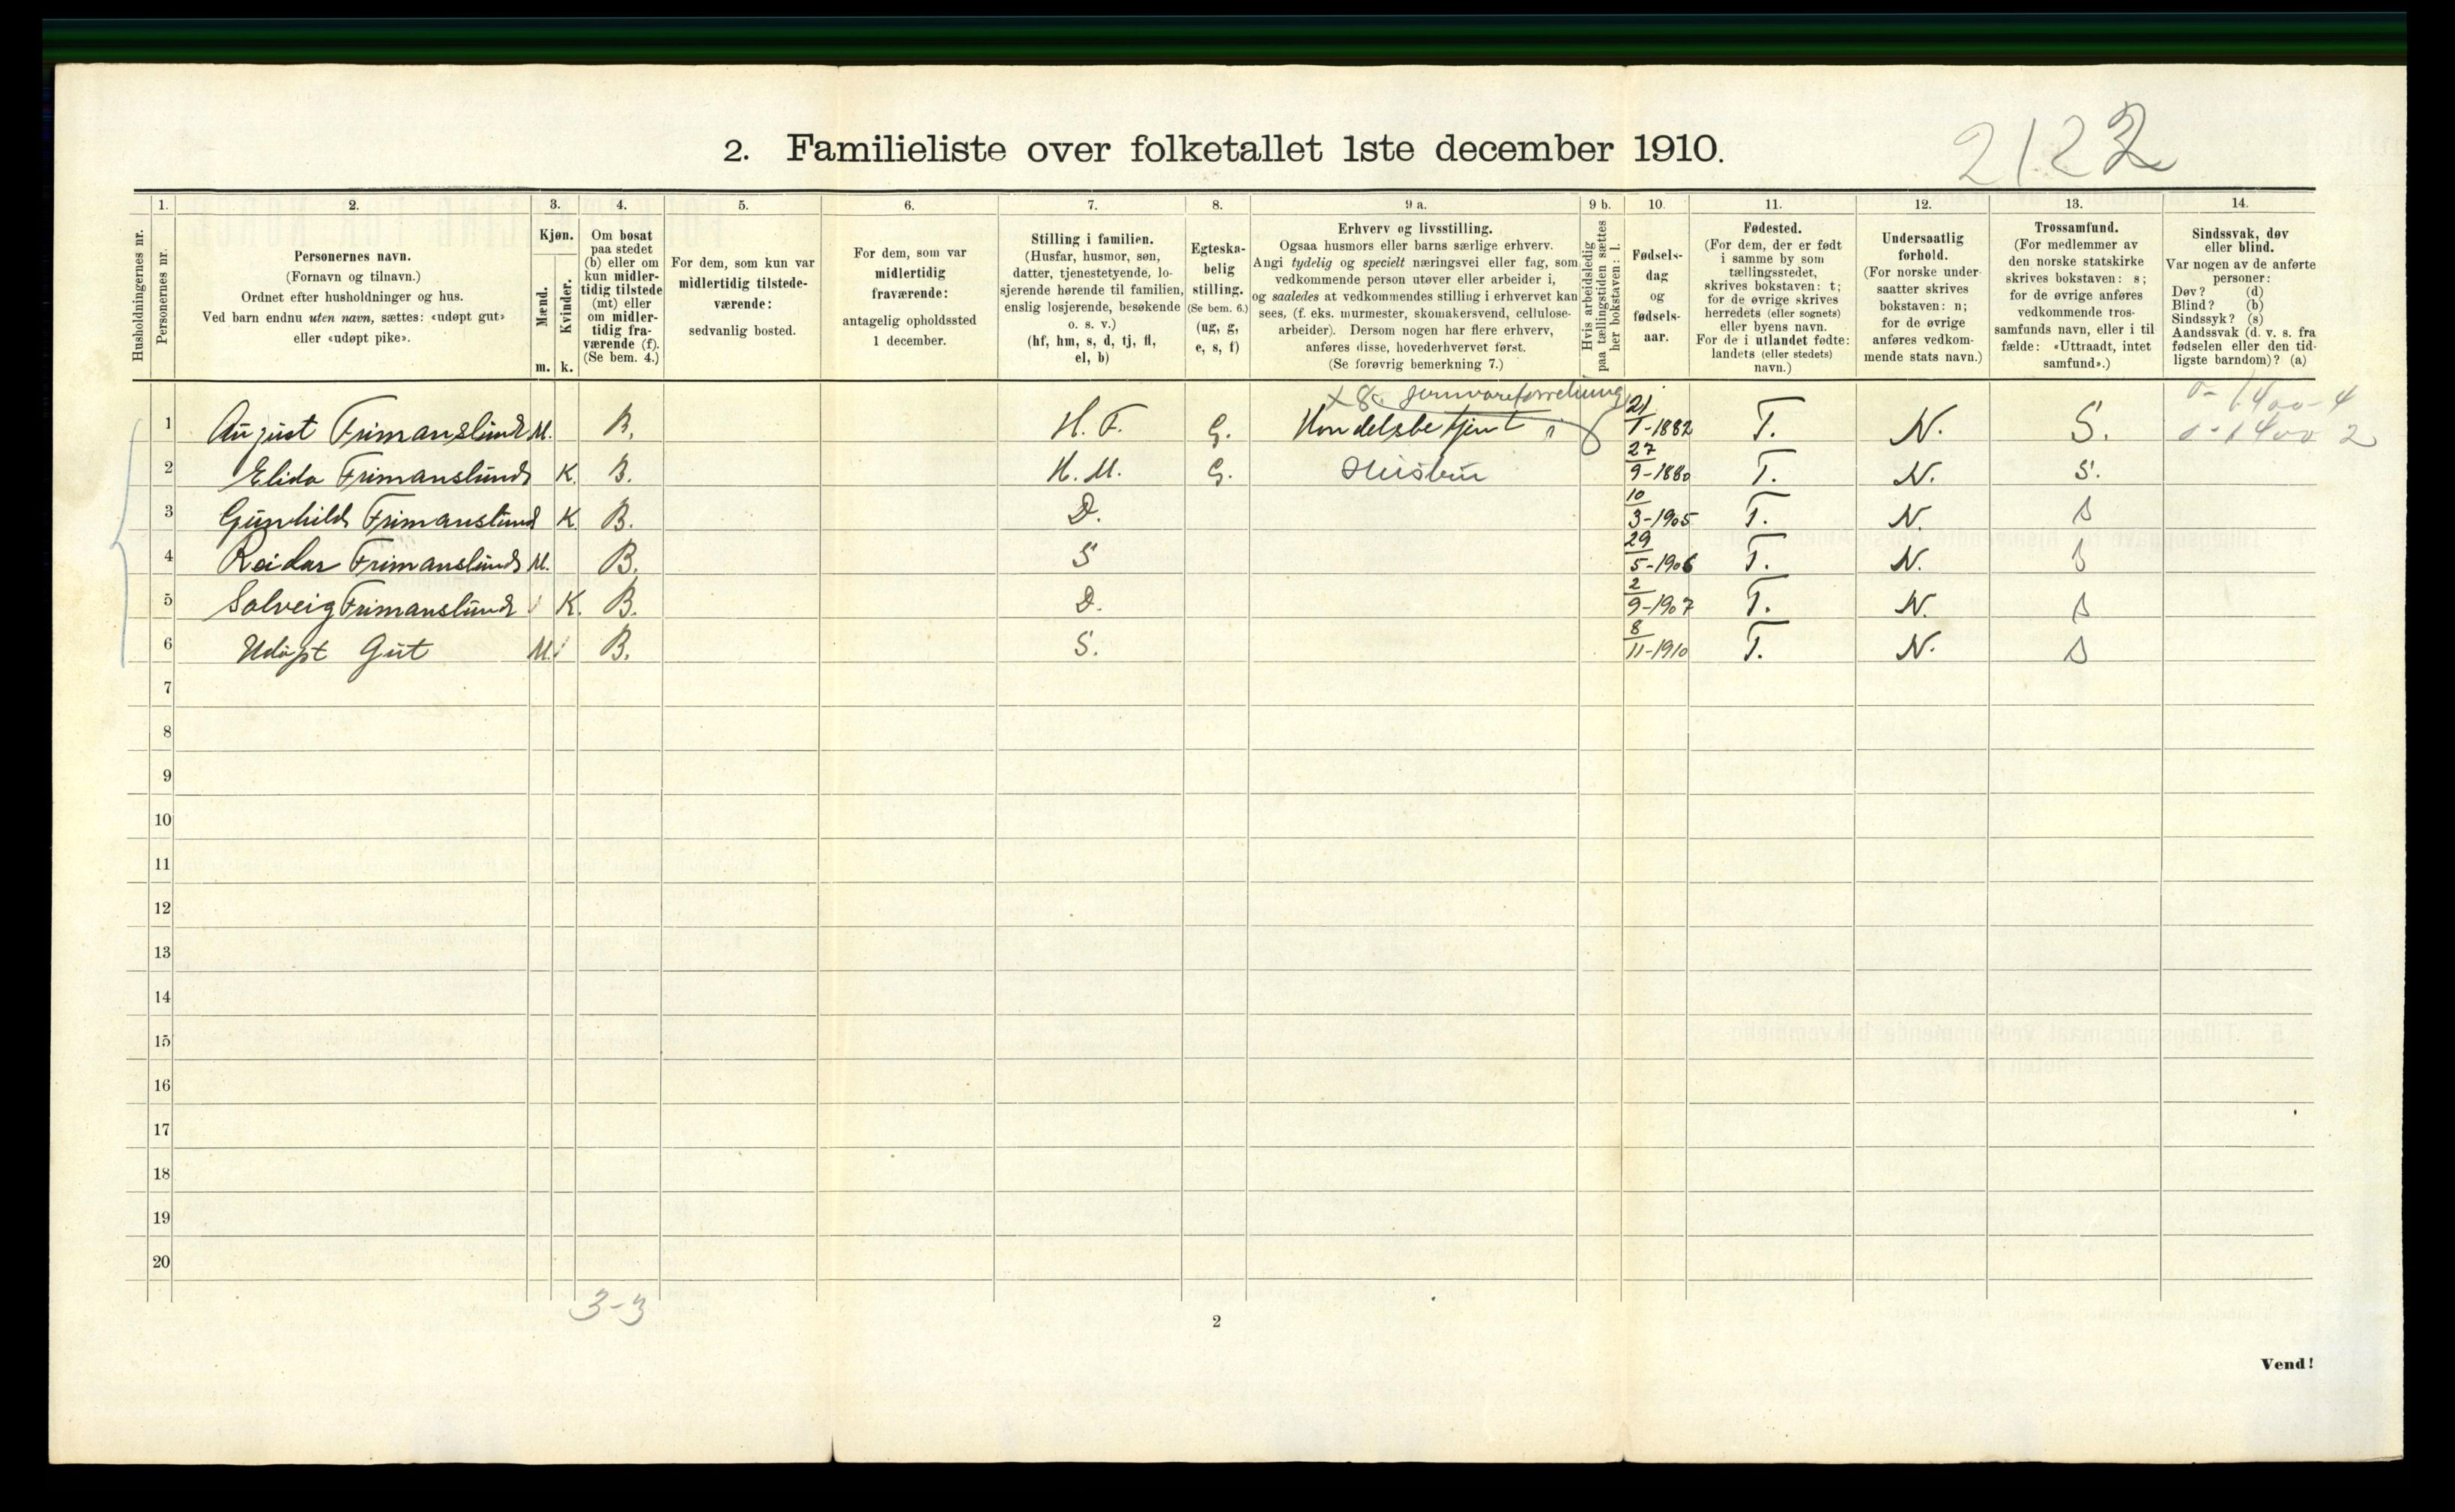 2122
2. Familieliste over folketallet 1ste december 1910.
Husholdningernes nr.
1. Personernes nr.
2.
Personernes navn.
(Fornavn og tilnavn.)
Ordnet efter husholdninger og hus.
Ved barn endnu uten navn, sættes: «udøpt gut»
eller «udøpt pike».
3.
Kjøn.
Mænd.
m.
Kvinder.
k.
4.
Om bosat
paa stedet
(b) eller om
kun midler-
tidig tilstede
(mt) eller
om midler-
tidig fra-
værende (f).
(Se bem. 4.)
5.
For dem, som kun var
midlertidig tilstede-
værende:
sedvanlig bosted.
6.
For dem, som var
midlertidig
fraværende:
antagelig opholdssted
1 december.
7.
Stilling i familien.
(Husfar, husmor, søn,
datter, tjenestetyende, lo-
sjerende hørende til familien,
enslig losjerende, besøkende
o. s. v.)
(hf, hm, s, d, tj, fl,
el, b)
8.
Egteska-
belig
stilling.
(Se bem. 6.)
(ug, g,
e, s, f)
9 a.
Erhverv og livsstilling.
Ogsaa husmors eller barns særlige erhverv.
Angi tydelig og specielt næringsvei eller fag, som
vedkommende person utøver eller arbeider i,
og saaledes at vedkommendes stilling i erhvervet kan
sees, (f. eks. murmester, skomakersvend, cellulose-
arbeider). Dersom nogen har flere erhverv,
anføres disse, hovederhvervet først.
(Se forøvrig bemerkning 7.)
9 b.
Hvis arbeidsledig
paa tællingstiden sættes
her bokstaven: l.
10.
Fødsels-
dag
og
fødsels-
aar.
11.
Fødested.
(For dem, der er født
i samme by som
tællingsstedet,
skrives bokstaven: t;
for de øvrige skrives
herredets (eller sognets)
eller byens navn.
For de i utlandet fødte:
landets (eller stedets)
navn.)
12.
Undersaatlig
forhold.
(For norske under-
saatter skrives
bokstaven: n;
for de øvrige
anføres vedkom-
mende stats navn.)
13.
Trossamfund.
(For medlemmer av
den norske statskirke
skrives bokstaven: s;
for de øvrige anføres
vedkommende tros-
samfunds navn, eller i til-
fælde: «Uttraadt, intet
samfund».)
14.
Sindssvak, døv
eller blind.
Var nogen av de anførte
personer:
Døv? (d)
Blind? (b)
Sindssyk? (s)
Aandssvak (d. v. s. fra
fødselen eller den tid-
ligste barndom)? (a)
Jernvareforretning 0-1400-4
1 August Frimanslund M. B. H. F. G. Handelsbetjent 21/1-1882 T. N. S. 0-1400 2
2 Elida Frimanslund K. B. H. M. G. Hustru 27/9-1880 T. N. S.
3 Gunhild Frimanslund K B. D. 10/3-1905 T. N. S
4 Reidar Frimanslund M. B. S 29/5-1906 T. N. S
5 Solveig Frimanslund K. B. D. 2/9-1907 T. N. S
6 Udøpt Gut M. B. S. 8/11-1910 T. N. S
7
8
9
10
11
12
13
14
15
16
17
18
19
20
3-3
2
Vend!